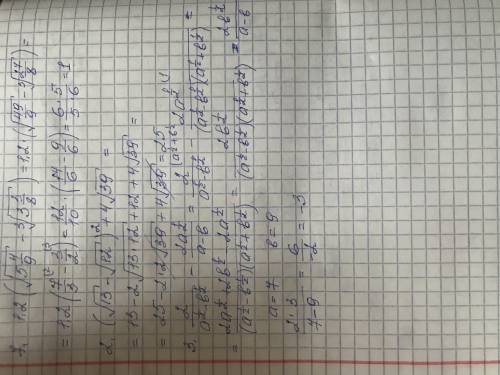 1. 1,2 (√5 4/9 − 3√3 3/8) = 1,2 (√49/9 − 3√27/8) =
= 1,2 (7/3 − 3/2) = 12/10 · (14/6 − 9/6) = 6·5/5·6 = 1
2. (√13 − √12)² + 4√39 =
= 13 − 2√13·12 + 12 + 4√39 =
= 25 − 2·2√39 + 4√39 = 25
3. 2/(a^½ − b^½) − 2a^½/(a − b) = 2/(a^½ − b^½) − 2a^½/((a^½ − b^½)(a^½ + b^½)) =
= (2a^½ + 2b^½ − 2a^½)/((a^½ − b^½)(a^½ + b^½)) = 2b^½/((a^½ − b^½)(a^½ + b^½)) = 2b^½/(a − b)
a = 7 b = 9
2·3/(7−9) = 6/−2 = −3